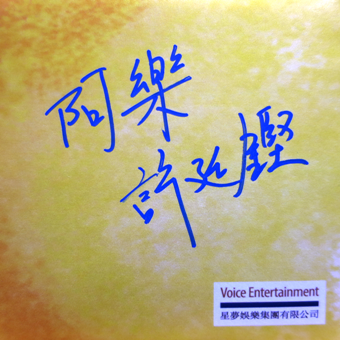 阿樂
許廷鏗
Voice Entertainment
星夢娛樂集團有限公司